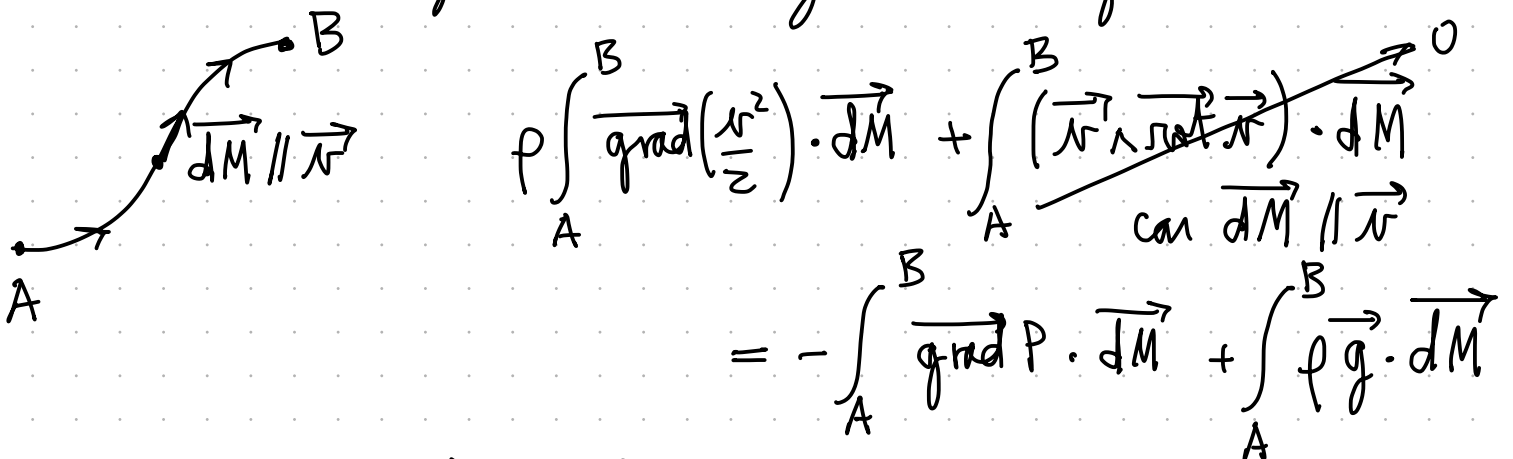 B
ρ ∫_A^B \overrightarrow{grad}(v²/2) · \overrightarrow{dM} + ∫_A^B (\vec{v} ∧ \overrightarrow{rot} \vec{v}) · \overrightarrow{dM} → 0
\overrightarrow{dM} // \vec{v}
car \overrightarrow{dM} // \vec{v}
A
= - ∫_A^B \overrightarrow{grad} P · \overrightarrow{dM} + ∫_A^B ρ \vec{g} · \overrightarrow{dM}